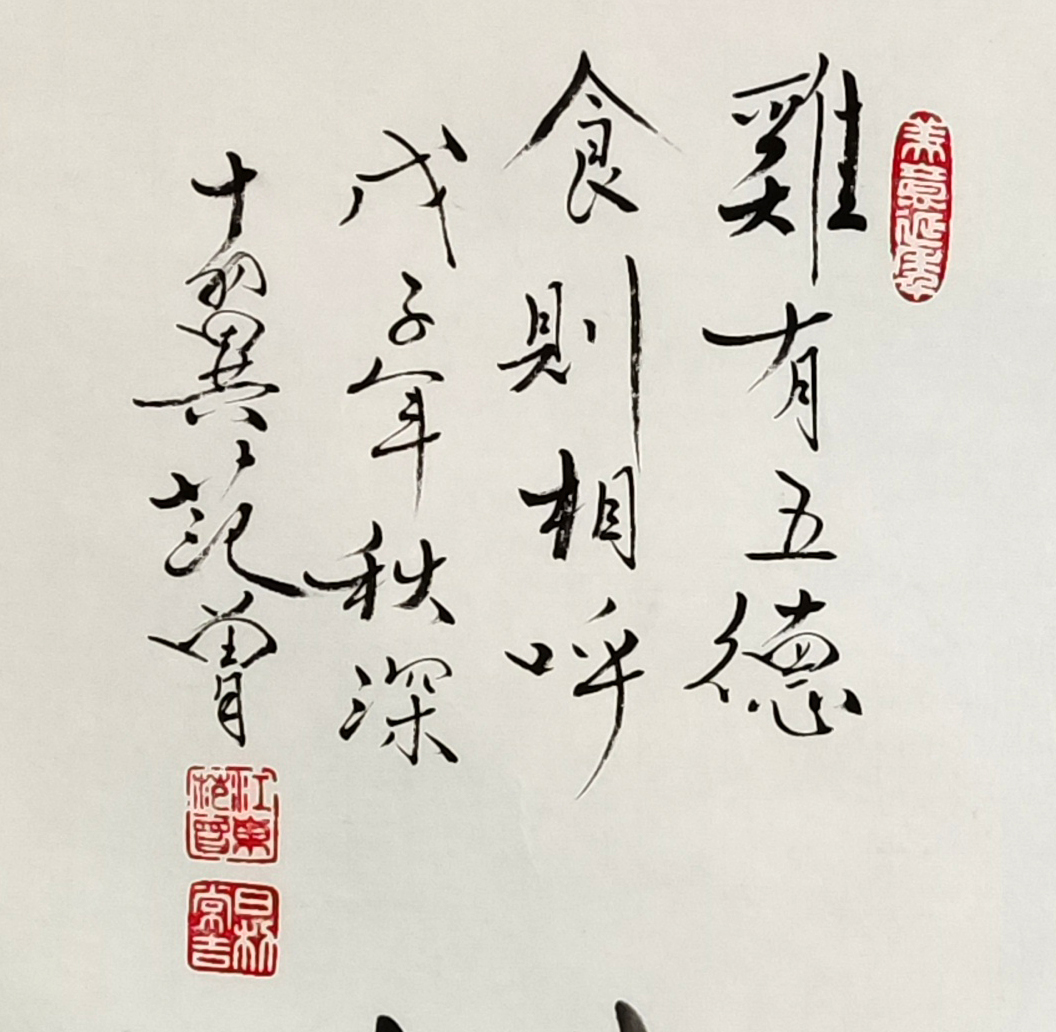 雞有五德
食則相呼
戊子年秋深
十翼范曾
江東范曾